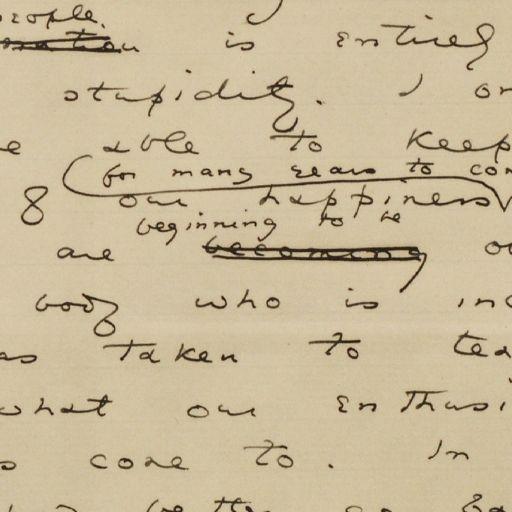 people.
is entirely
stupidity. I
able to keep
for many years to
& our happiness
beginning to be
are becoming
body who is
as taken to
what our
core to. In
better